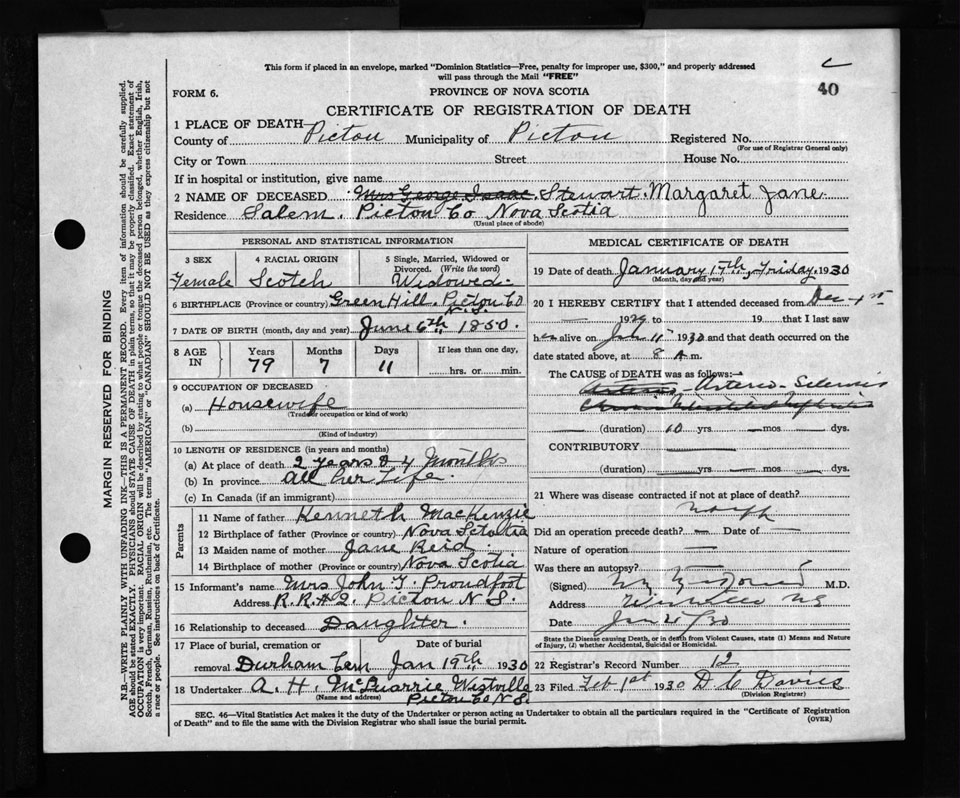 This form if placed in an envelope, marked "Dominion Statistics—Free, penalty for improper use, $300," and properly addressed
will pass through the Mail "FREE"
40
FORM 6.
PROVINCE OF NOVA SCOTIA
CERTIFICATE OF REGISTRATION OF DEATH
1 PLACE OF DEATH
County of Pictou Municipality of Pictou Registered No.
(For use of Registrar General only)
City or Town Street House No.
If in hospital or institution, give name
2 NAME OF DECEASED Mrs George Isaac Stewart. Margaret Jane
Residence Salem. Pictou Co Nova Scotia
(Usual place of abode)
PERSONAL AND STATISTICAL INFORMATION
3 SEX 4 RACIAL ORIGIN 5 Single, Married, Widowed or
Divorced. (Write the word)
Female Scotch Widowed.
6 BIRTHPLACE (Province or country) Green Hill. Pictou Co
N.S.
7 DATE OF BIRTH (month, day and year) June 6th 1850.
8 AGE IN Years Months Days If less than one day,
79 7 11 hrs. or min.
9 OCCUPATION OF DECEASED
(a) Housewife
(Trade or occupation or kind of work)
(b)
(Kind of industry)
10 LENGTH OF RESIDENCE (in years and months)
(a) At place of death 2 years & 4 Months
(b) In province all her Life.
(c) In Canada (if an immigrant)
Parents
11 Name of father Kenneth MacKenzie
12 Birthplace of father (Province or country) Nova Sctotia
13 Maiden name of mother Jane Reid
14 Birthplace of mother (Province or country) Nova Scotia
15 Informant's name Mrs John Y. Proudfoot
Address R.R.#2. Pictou N S.
16 Relationship to deceased Daughter.
17 Place of burial, cremation or Date of burial
removal Durham Cem Jan 19th 1930
18 Undertaker A. H. McQuarrie Westville
(Name and address) Pictou Co N.S.
MEDICAL CERTIFICATE OF DEATH
19 Date of death January 17th, Friday, 1930
(Month, day and year)
20 I HEREBY CERTIFY that I attended deceased from Dec 1st
1929 to 19 that I last saw
her alive on Jan 11th 1930 and that death occurred on the
date stated above, at 8 A.m.
The CAUSE of DEATH was as follows:—
Arterio-Sclerosis
(duration) 10 yrs. mos. dys.
CONTRIBUTORY
(duration) yrs. mos. dys.
21 Where was disease contracted if not at place of death?
Did an operation precede death? Date of
Nature of operation
Was there an autopsy?
(Signed) M.D.
Address
Date
State the Disease causing Death, or in death from Violent Causes, state (1) Means and Nature
of Injury, (2) whether Accidental, Suicidal or Homicidal.
22 Registrar's Record Number 12
23 Filed Feb 1st 1930 D C Davies
(Division Registrar)
SEC. 46—Vital Statistics Act makes it the duty of the Undertaker or person acting as Undertaker to obtain all the particulars required in the "Certificate of Registration
of Death" and to file the same with the Division Registrar who shall issue the burial permit.
(OVER)
MARGIN RESERVED FOR BINDING
N.B.—WRITE PLAINLY WITH UNFADING INK—THIS IS A PERMANENT RECORD. Every item of information should be carefully supplied.
AGE should be stated EXACTLY. PHYSICIANS should STATE CAUSE OF DEATH in plain terms, so that it may be properly classified. Exact statement of
OCCUPATION is very important. RACIAL ORIGIN will be described by stating to what people or tongue the deceased person belonged, whether English, Irish,
Scotch, French, German, Russian, Ruthenian, etc. The terms "AMERICAN" or "CANADIAN" SHOULD NOT BE USED as they express citizenship but not
a race or people. See instructions on back of Certificate.